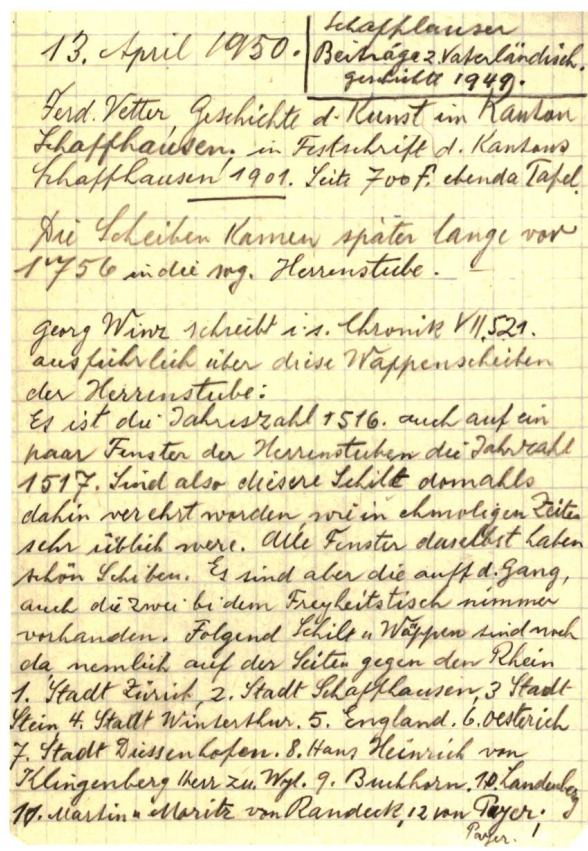 13. April 1950.
Schaffhauser
Beiträge z. Vaterländisch.
geschichte 1949.
Ferd. Vetter Geschichte d. Kunst im Kanton
Schaffhausen, in Festschrift d. Kantons
Schaffhausen 1901. Seite 700 f. ebenda Tafel.
Die Scheiben kamen später lange vor
1756 in die sog. Herrenstube.
Georg Winz schreibt i. s. Chronik VII, 521.
ausführlich über diese Wappenscheiben
der Herrenstube:
Es ist die Jahreszahl 1516. auch auf ein
paar Fenster der Herrenstuben die Jahrzahl
1517. Sind also diesere Schilt domahls
dahin verehrt worden, wie in ehmoligen Zeiten
sehr üblich were. Alle Fenster daselbst haben
schön Schiben. Es sind aber die auff d. Gang,
auch die zwei bi dem Freyheitstisch nimmer
vorhanden. Folgend Schilt u Wäppen sind noch
da nemlich auf der Seiten gegen den Rhein
1. Stadt Zürich, 2. Stadt Schaffhausen, 3 Stadt
Stein, 4. Statt Winterthur. 5. England. 6. Oesterich
7. Stadt Diessenhofen. 8. Hans Heinrich von
Klingenberg Herr zu Wyl. 9. Buchhorn. 10. Landenberg
11. Martin u Moritz von Randeck, 12 von Payer.
Payer. !